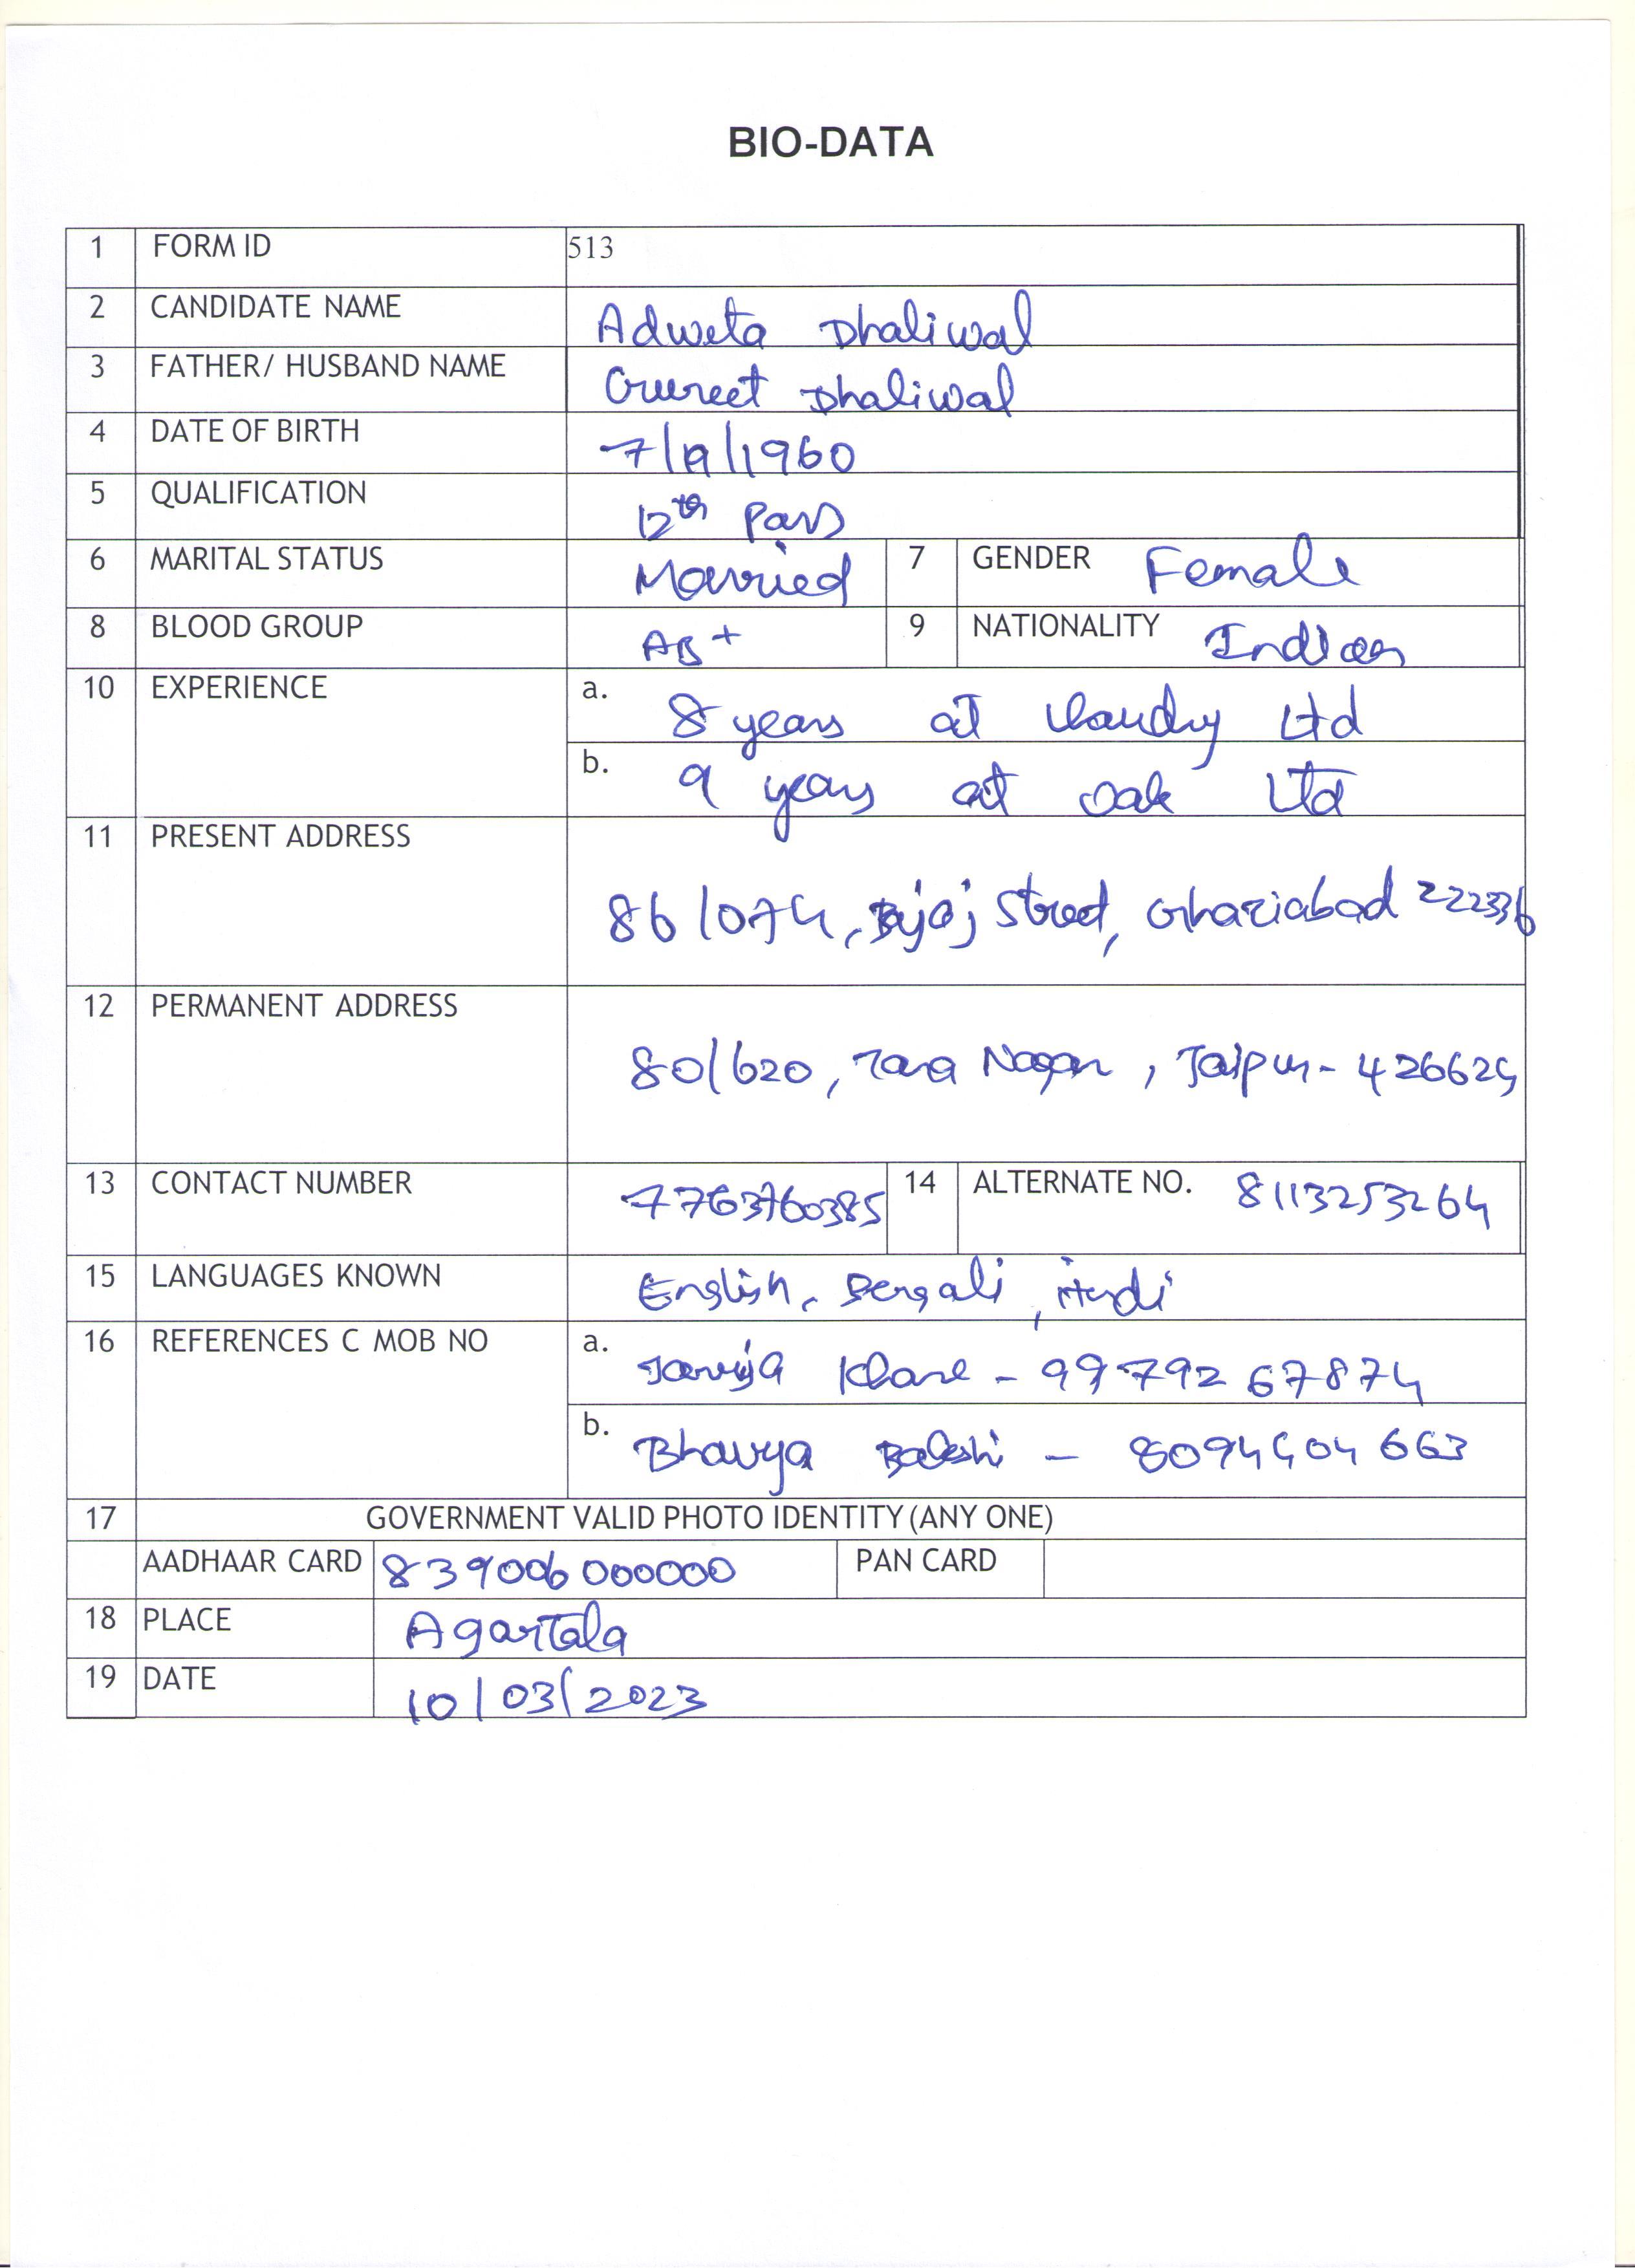 BIO-DATA
1 FORM ID 513
2 CANDIDATE NAME Adweta Dhaliwal
3 FATHER/ HUSBAND NAME Dhaliwal
4 DATE OF BIRTH
5 QUALIFICATION 12th Pass
6 MARITAL STATUS Married 7 GENDER Female
8 BLOOD GROUP AB+ 9 NATIONALITY Indian
10 EXPERIENCE a. 8 years at Ltd
b. 9 years at Oak Ltd
11 PRESENT ADDRESS
86/074, Street, Ghaziabad
12 PERMANENT ADDRESS
80/620, Tara Nagar, Jaipur-
13 CONTACT NUMBER 7763760385 14 ALTERNATE NO. 8113253264
15 LANGUAGES KNOWN English, Bengali, Hindi
16 REFERENCES C MOB NO a. Khare - 9979267874
b. Bhavya Bakshi - 8094404663
17 GOVERNMENT VALID PHOTO IDENTITY (ANY ONE)
AADHAAR CARD 839006000000 PAN CARD
18 PLACE Agartala
19 DATE 10/03/2023